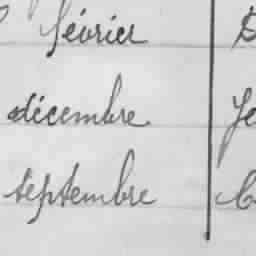 février
décembre
septembre